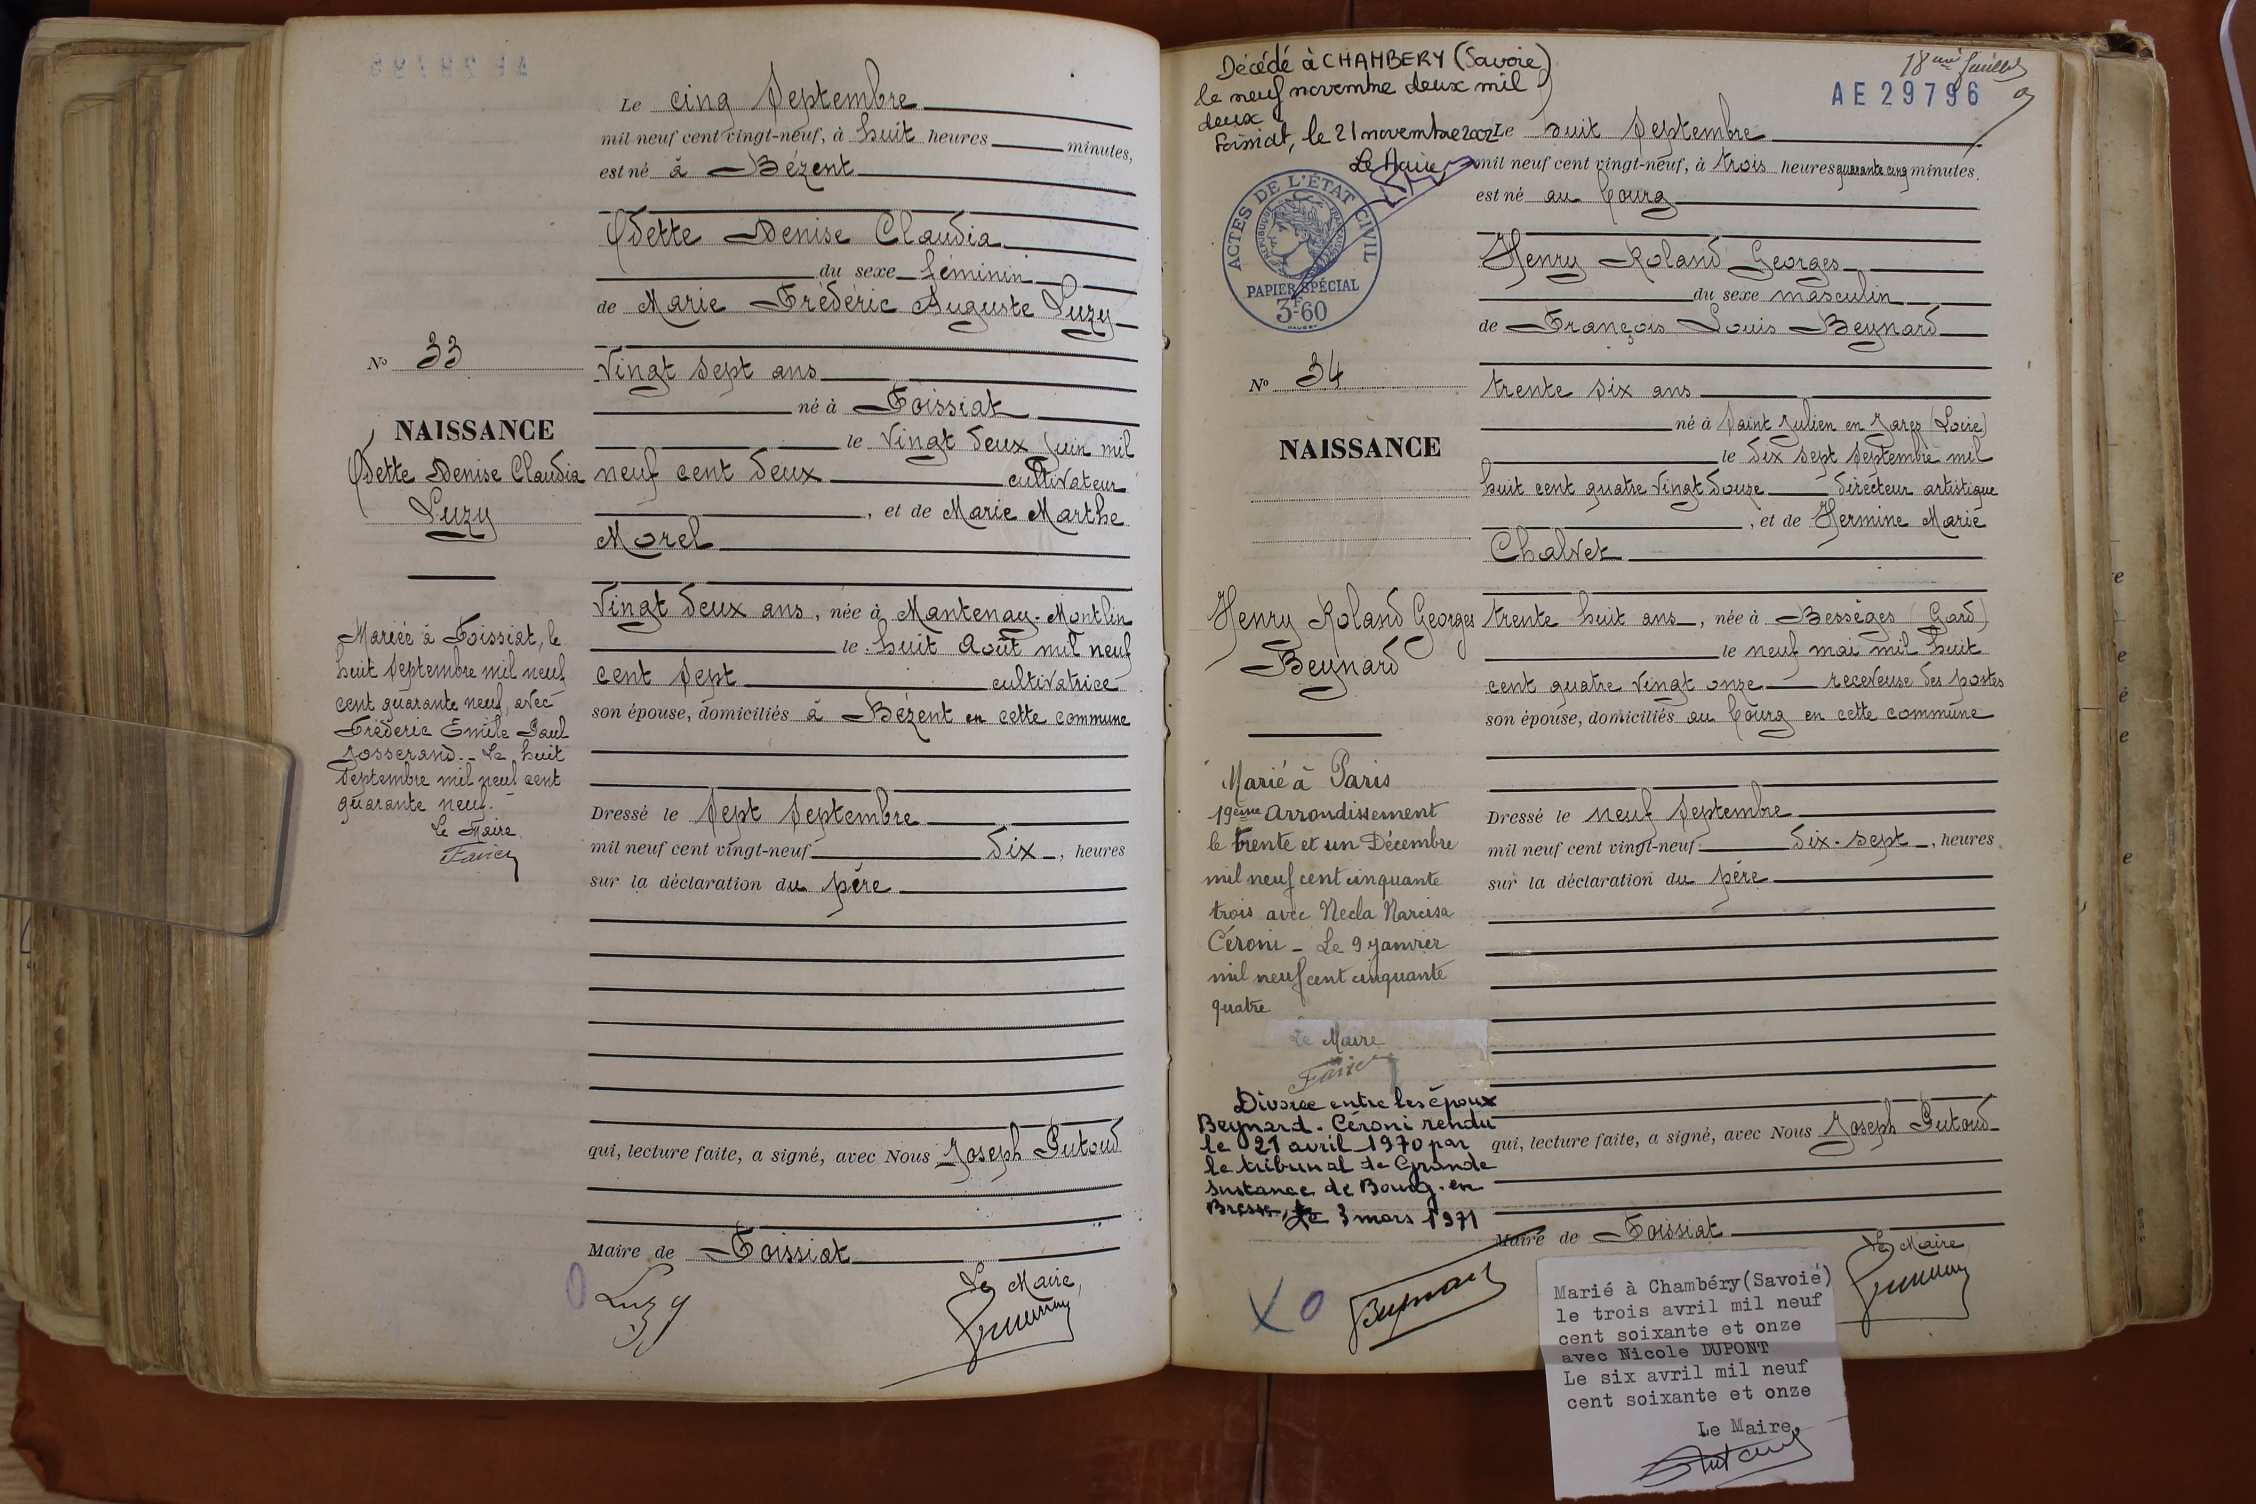 Le cinq Septembre
mil neuf cent vingt-neuf, à huit heures minutes,
est né à Bézent
Odette Denise Claudia
du sexe féminin
de Marie Frédéric Auguste Luzy
Vingt sept ans
né à Foissiat
le vingt deux Juin mil
neuf cent deux cultivateur
, et de Marie Marthe
Morel
Vingt deux ans, née à Mantenay-Montlin
le huit Août mil neuf
cent sept cultivatrice
son épouse, domiciliés à Bézent en cette commune
Dressé le Sept Septembre
mil neuf cent vingt-neuf dix, heures
sur la déclaration du père
qui, lecture faite, a signé, avec Nous Joseph Putoud
Maire de Foissiat
Luzy
Le Maire,
No 33
NAISSANCE
Odette Denise Claudia
Luzy
Mariée à Foissiat, le
huit Septembre mil neuf
cent quarante neuf, avec
Frédéric Emile Paul
Josserand.- Le huit
Septembre mil neuf cent
quarante neuf.-
Le Maire
Favier
Décédé à CHAMBERY (Savoie)
le neuf novembre deux mil
deux
Foissiat, le 21 novembre 2002
Le Maire
ACTES DE L'ÉTAT CIVIL
RÉPUBLIQUE FRANÇAISE
PAPIER SPÉCIAL
3F60
18eme feuillet
AE 29796
Le huit Septembre
mil neuf cent vingt-neuf, à trois heures quarante cinq minutes.
est né au bourg
Henry Roland Georges
du sexe masculin
de François Louis Beynard
trente six ans
né à Saint Julien en Jarez (Loire)
le dix sept Septembre mil
huit cent quatre vingt douze directeur artistique
, et de Hermine Marie
Chalvet
trente huit ans, née à Bessèges (Gard)
le neuf mai mil huit
cent quatre vingt onze receveuse des postes
son épouse, domiciliés au bourg en cette commune
Dressé le neuf Septembre
mil neuf cent vingt-neuf dix-sept, heures
sur la déclaration du père
qui, lecture faite, a signé, avec Nous Joseph Putoud
Maire de Foissiat
Le Maire,
Beynard
No 34
NAISSANCE
Henry Roland Georges
Beynard
Marié à Paris
19eme Arrondissement
le trente et un Décembre
mil neuf cent cinquante
trois avec Necla Narcisa
Céroni - Le 9 janvier
mil neuf cent cinquante
quatre
Le Maire
Favier
Divorce entre les époux
Beynard - Céroni rendu
le 21 avril 1970 par
le tribunal de Grande
Instance de Bourg-en
Bresse, le 3 mars 1971
X O
Marié à Chambéry (Savoie)
le trois avril mil neuf
cent soixante et onze
avec Nicole DUPONT
Le six avril mil neuf
cent soixante et onze
Le Maire